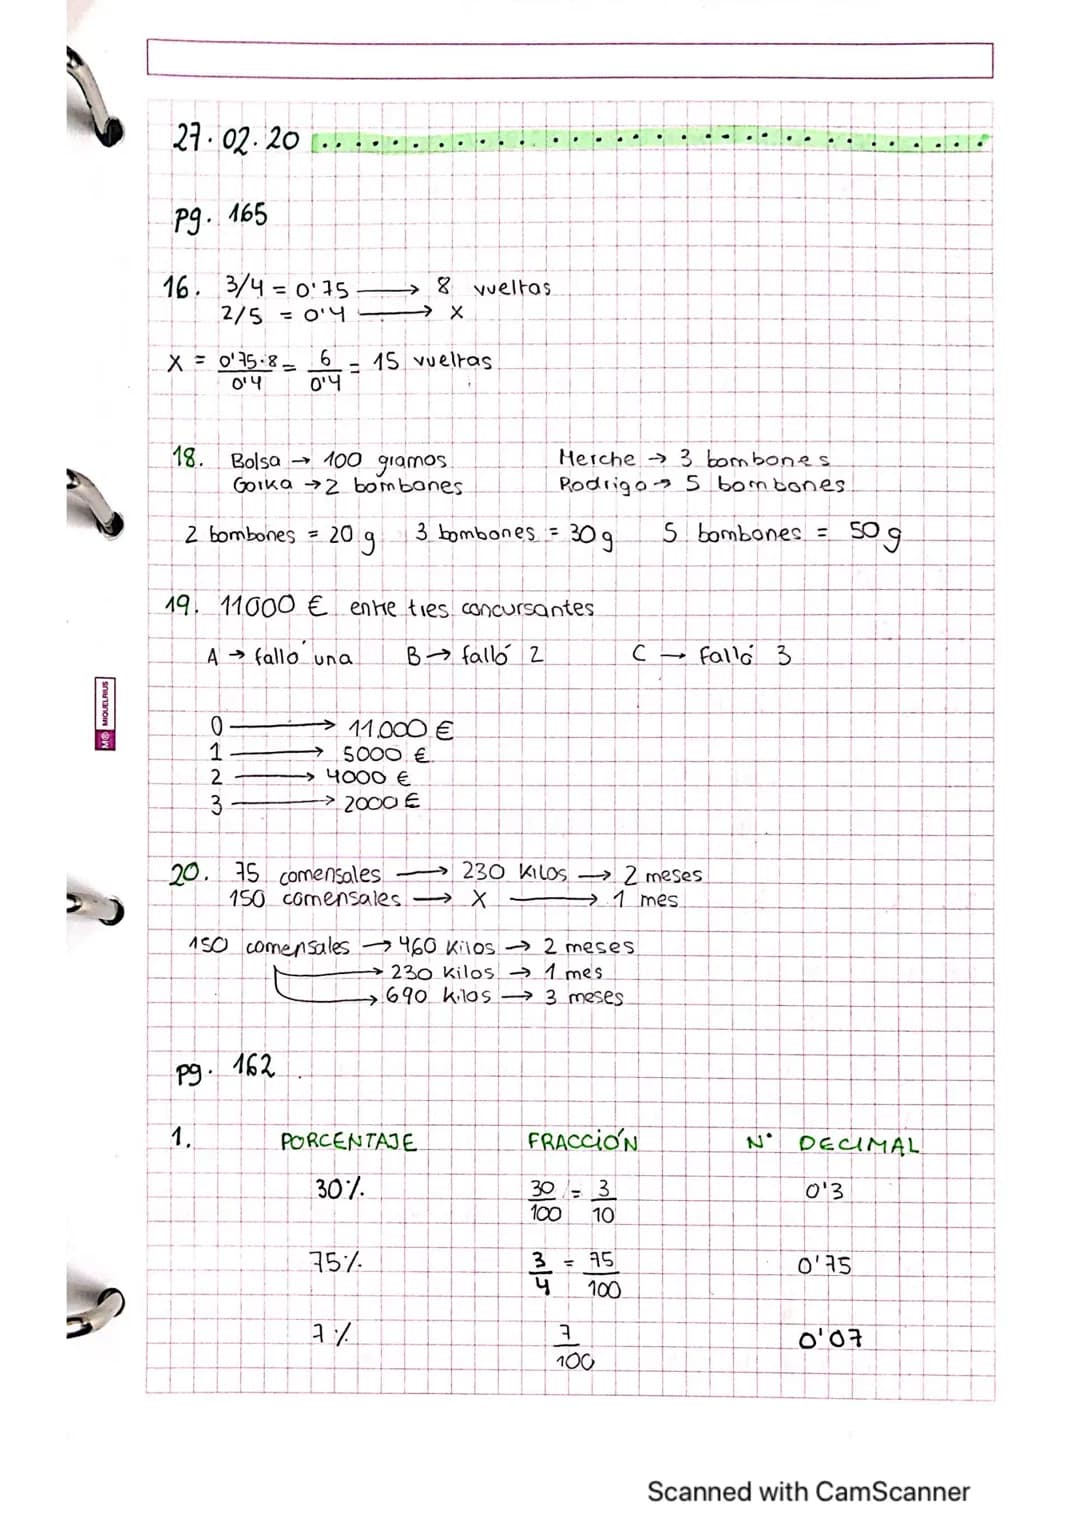 27.02.20
pg. 165
16. 3/4 = 0'75 → 8 vueltas
2/5 = 0'4 → x
X = 0'75·8/0'4 = 6/0'4 = 15 vueltas
18. Bolsa → 100 gramos Merche → 3 bombones
Gorka → 2 bombones Rodrigo → 5 bombones
2 bombones = 20 g 3 bombones = 30 g 5 bombones = 50 g
19. 11000 € entre tres concursantes
A → falló una B → falló 2 C → falló 3
0 → 11.000 €
1 → 5000 €
2 → 4000 €
3 → 2000 €
MIQUELRIUS
20. 75 comensales → 230 Kilos → 2 meses
150 comensales → X → 1 mes
150 comensales → 460 Kilos → 2 meses
→ 230 Kilos → 1 mes
→ 690 kilos → 3 meses
pg. 162
1. PORCENTAJE FRACCIÓN Nº DECIMAL
30% 30/100 = 3/10 0'3
75% 3/4 = 75/100 0'75
7% 7/100 0'07
Scanned with CamScanner